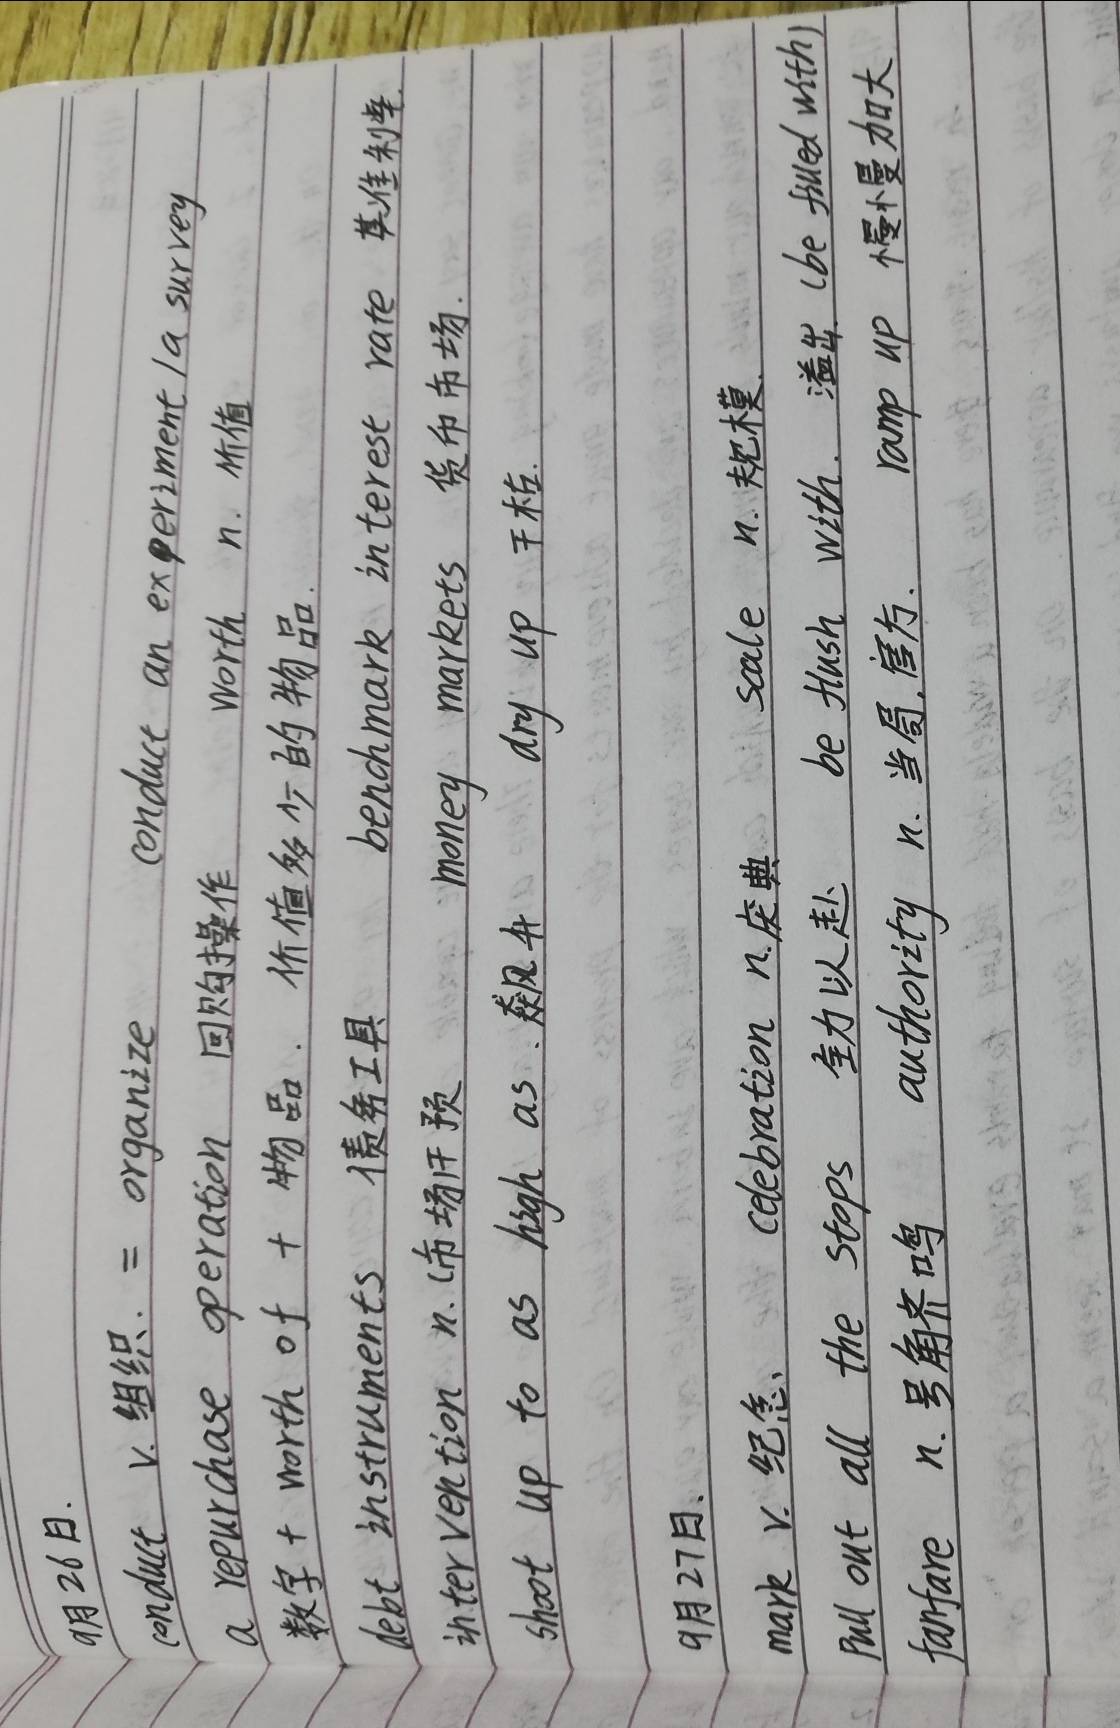 9月26日.
conduct v. 组织. = organize conduct an experiment / a survey
a repurchase operation 回购操作 worth n. 价值
数字 + worth of + 物品. 价值多少的物品.
debt instruments 债务工具 benchmark interest rate 基准利率.
intervention n. (市场)干预 money markets 货币市场.
shoot up to as high as. 飙升 dry up 干枯.
9月27日.
mark v. 纪念、 celebration n. 庆典 scale n. 规模.
Pull out all the stops 全力以赴 be flush with. 溢出 (be filled with)
fanfare n. 号角齐鸣 authority n. 当局, 官方. ramp up 慢慢加大